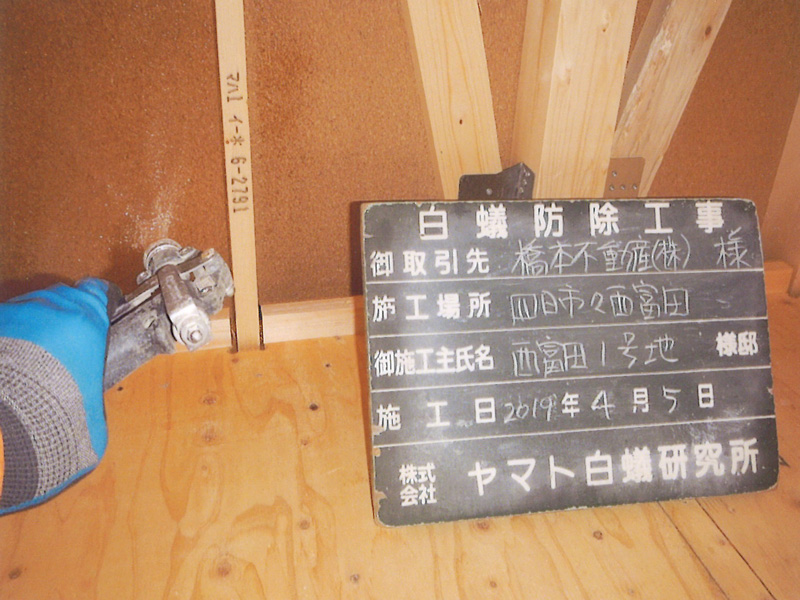 マル1 イ-*6-2791
白蟻防除工事
御取引先 橋本不動産(株) 様
施工場所 四日市々西富田
御施工主氏名 西富田1号地 様邸
施工日 2019年4月5日
株式会社 ヤマト白蟻研究所